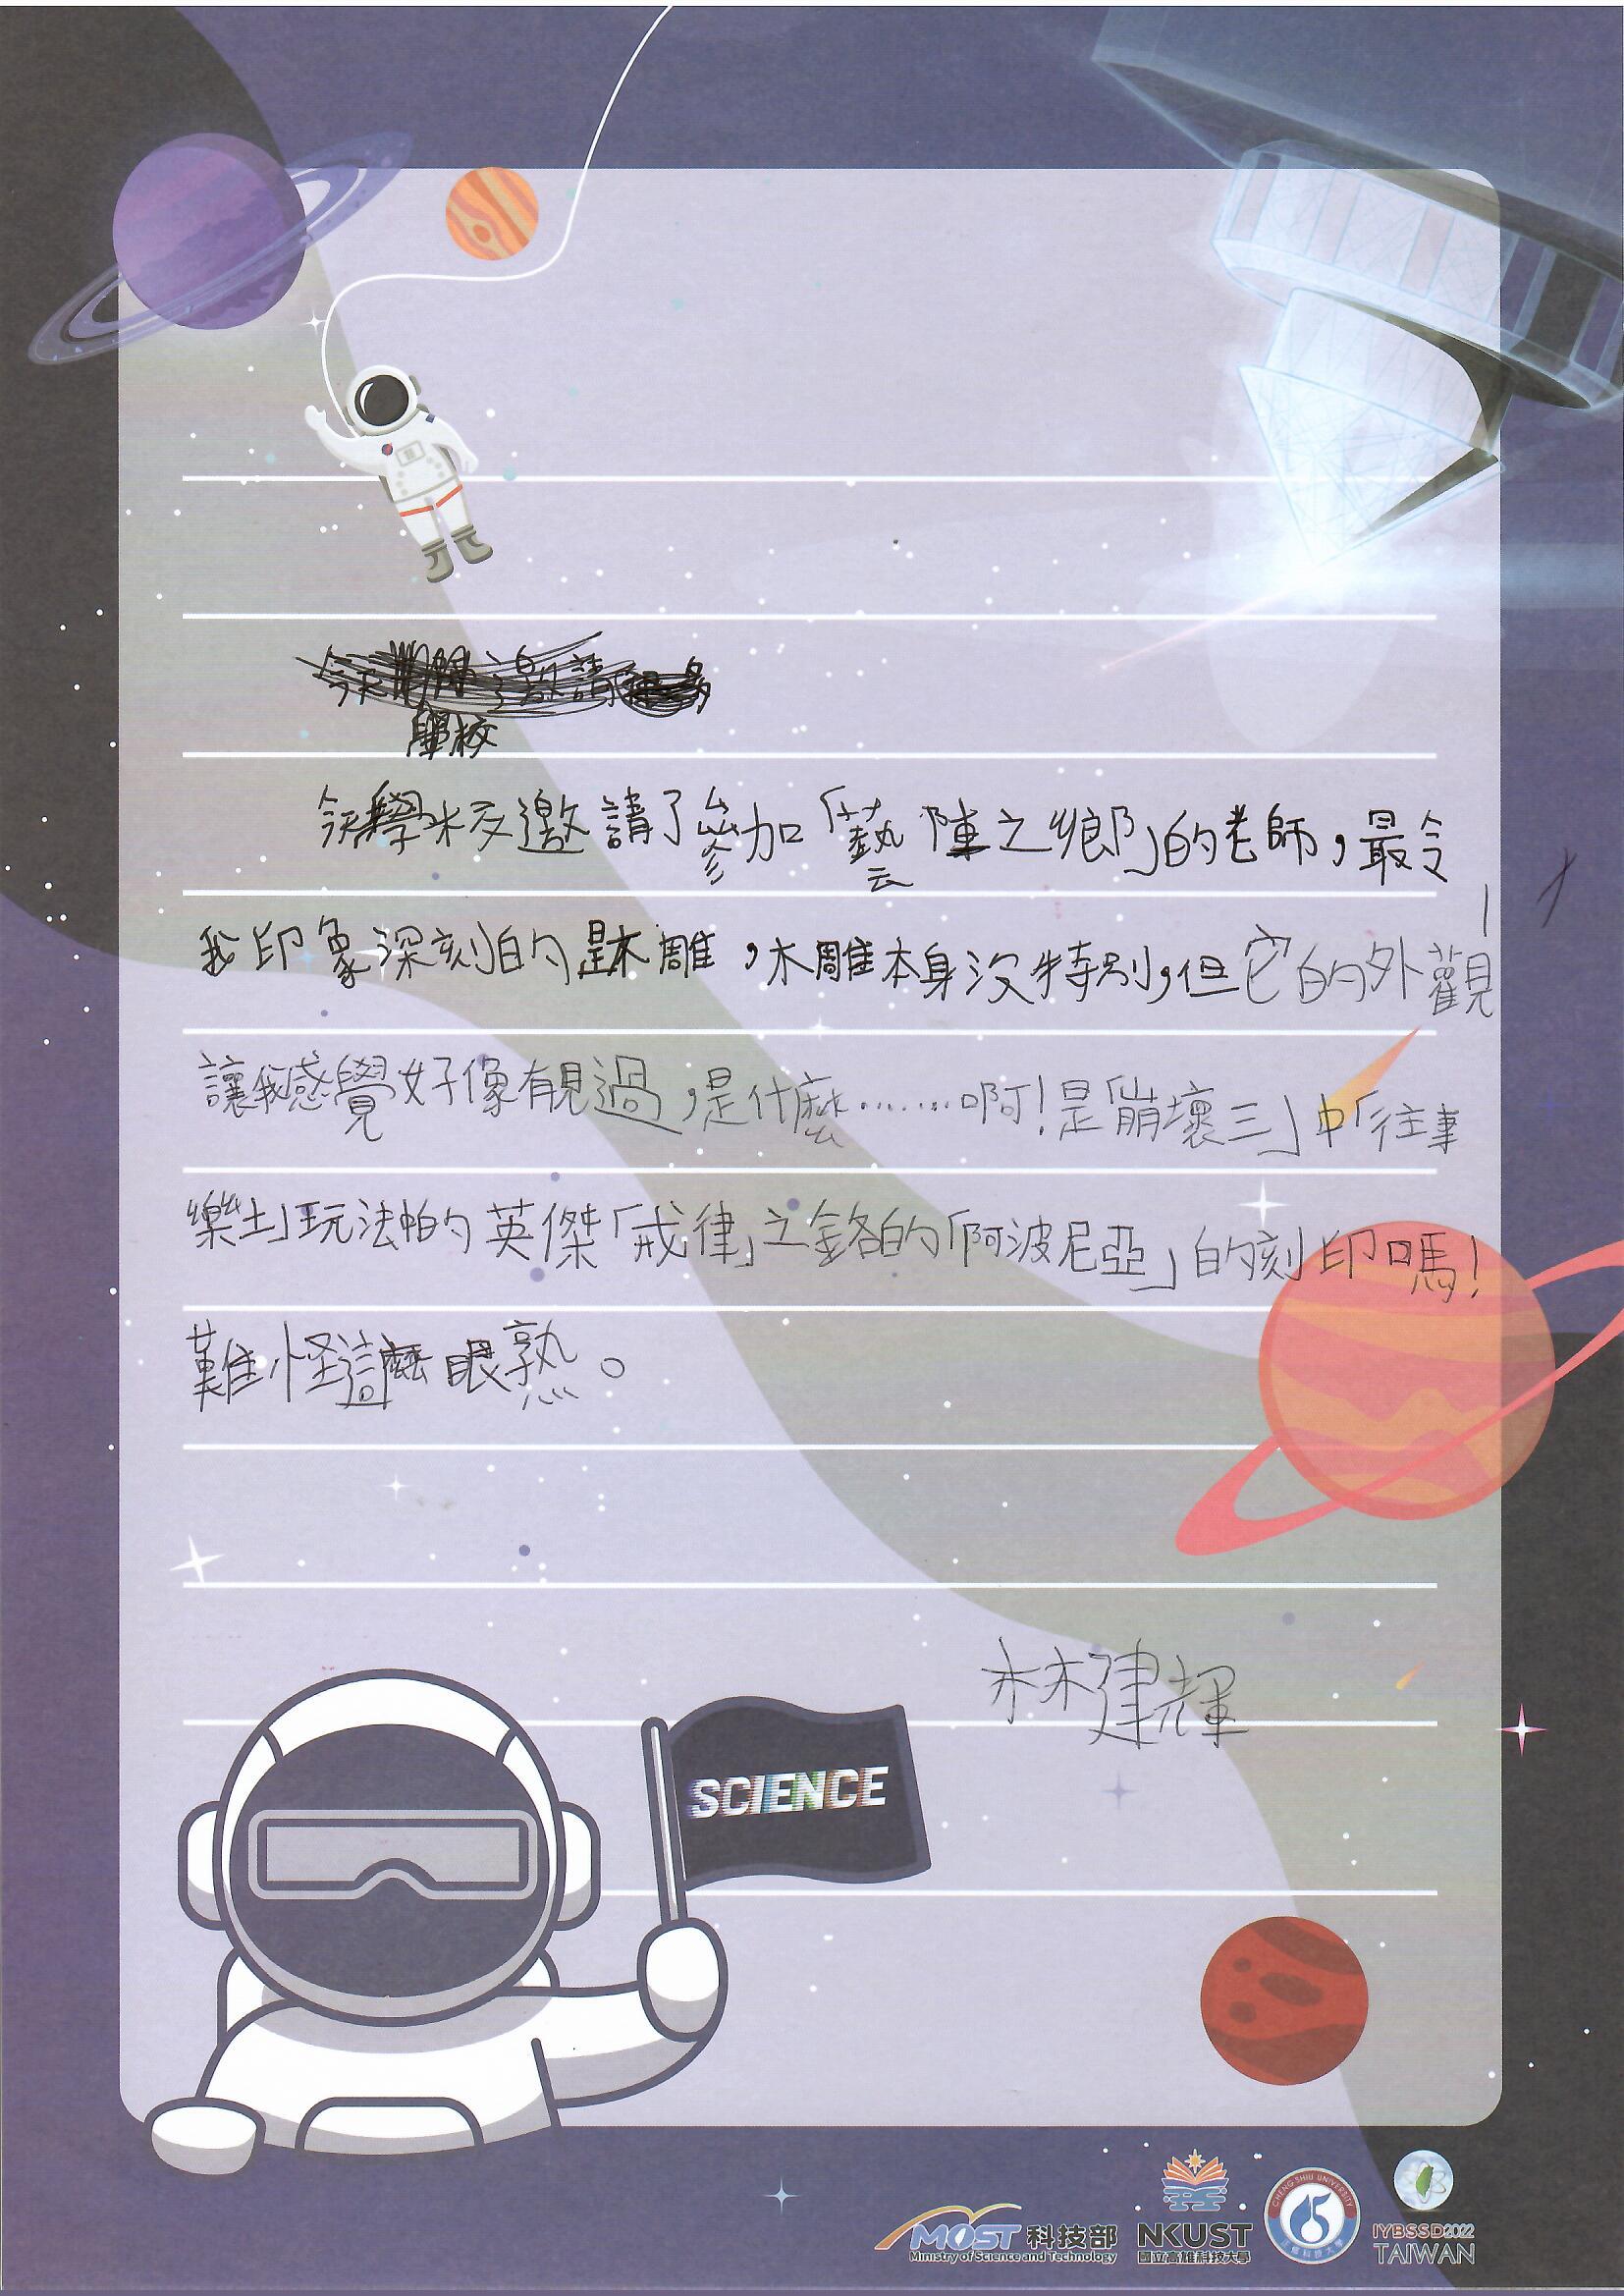 學校
今天學校邀請了參加「藝陣之鄉」的老師，最令
我印象深刻的是木雕，木雕本身沒特別，但它的外觀
讓我感覺好像有見過，是什麼………啊！是「崩壞三」中「往事
樂土」玩法的英傑「戒律」之銘的「阿波尼亞」的刻印嗎！
難怪這麼眼熟。
林建輝
SCIENCE
MOST 科技部
Ministry of Science and Technology
NKUST
國立高雄科技大學
CHENG SHIU UNIVERSITY
正修科技大學
IYBSSD2022
TAIWAN